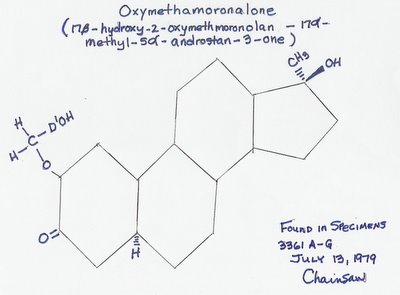 Oxymethamoronalone
(17β-hydroxy-2-oxymethmoronolan-17α-
methyl-5α-androstan-3-one)
CH₃
OH
H
D'OH
C
H
O
O
H
Found in Specimens
3361 A-G
July 13, 1979
Chainsaw